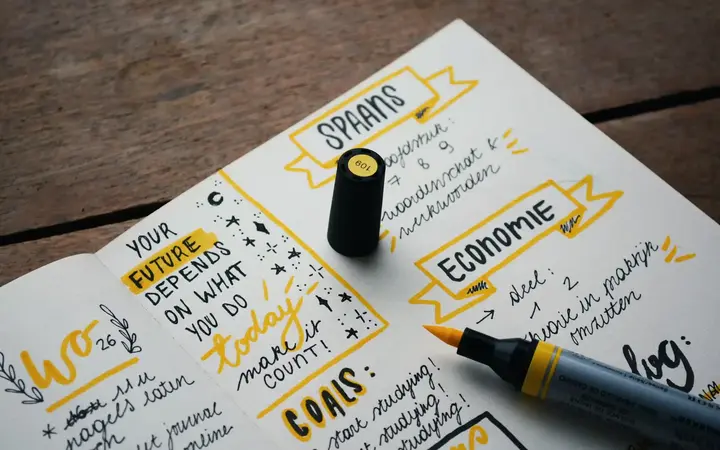 YOUR
FUTURE
DEPENDS
ON WHAT
YOU DO
today
make it
COUNT!
GOALS:
start studying!
start studying!
studying!
WO 26
nagels laten
journal
online
SPAANS
7 8 9
woordenschat &
werkwoorden
ECONOMIE
→ deel:
1 2
theorie in praktijk
omzetten
109